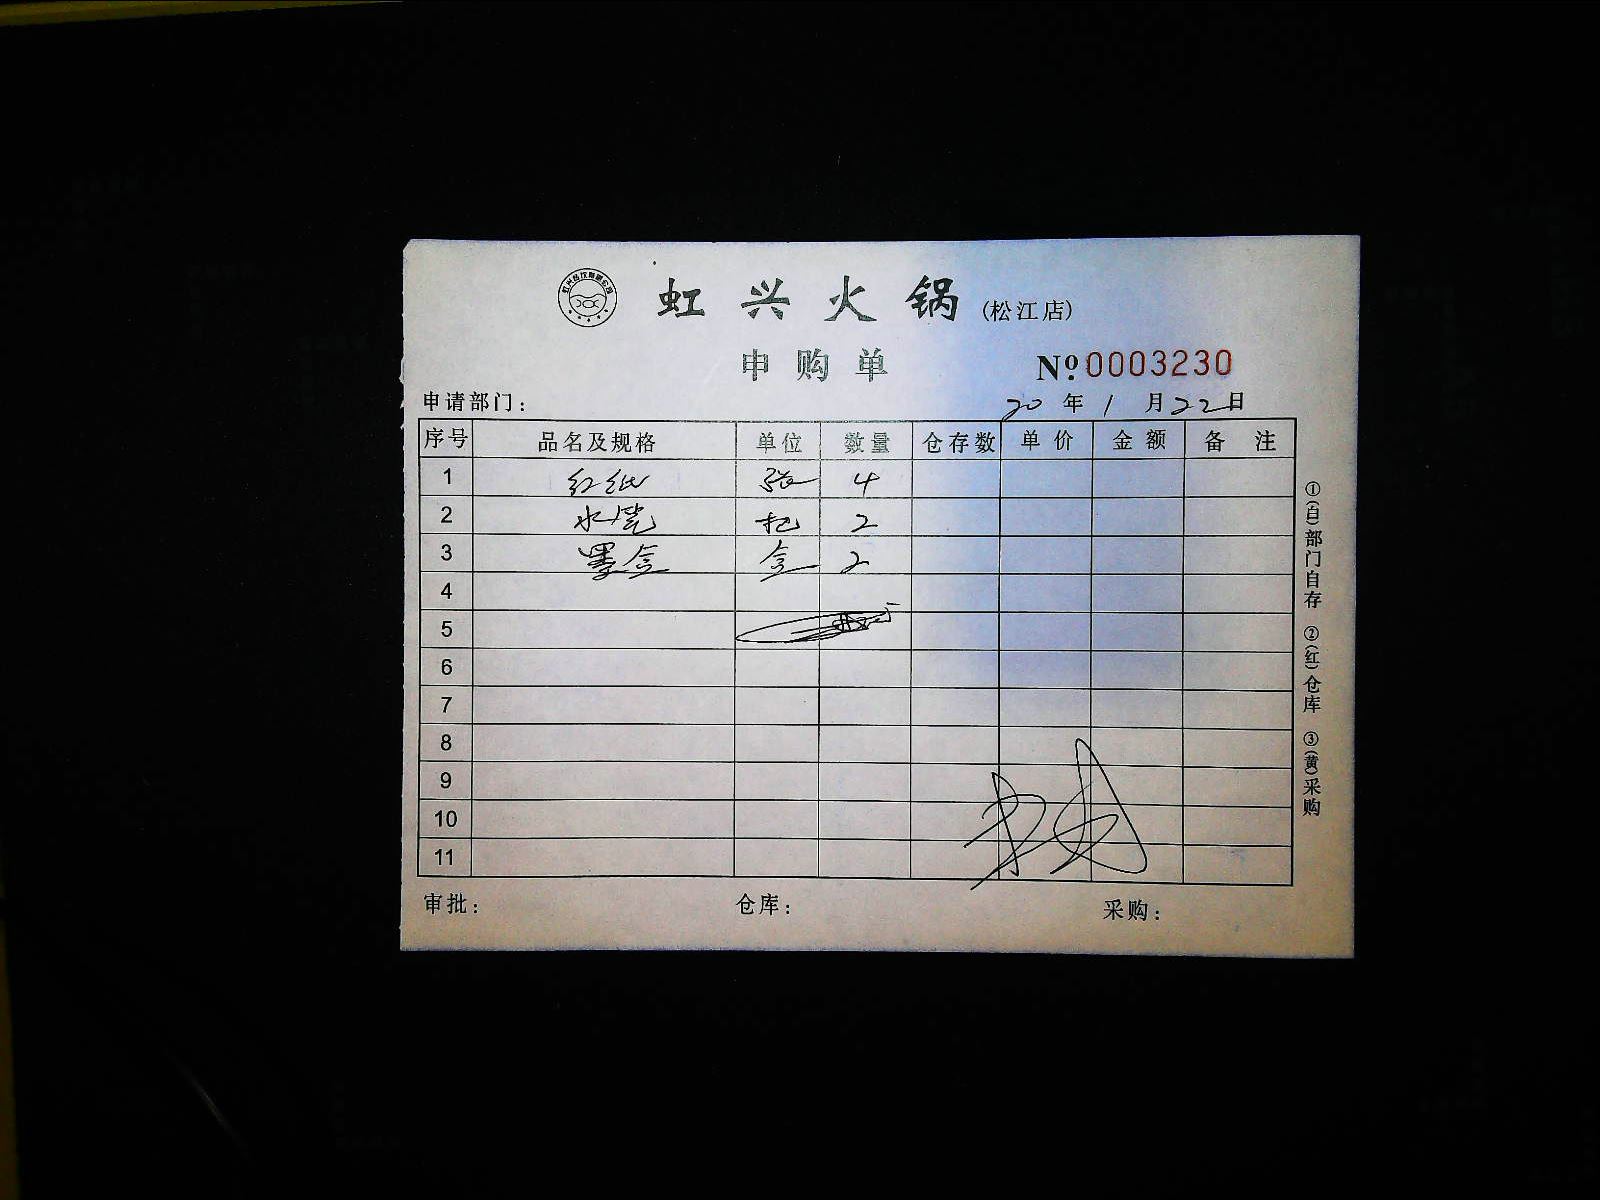 虹兴火锅(松江店)
申购单 Nº 0003230
申请部门: 20年1月22日
序号 品名及规格 单位 数量 仓存数 单价 金额 备注
1 红纸 张 4
2 水凳 把 2
3 墨盒 盒 2
4
5
6
7
8
9
10
11
审批: 仓库: 采购:
①(白)部门自存 ②(红)仓库 ③(黄)采购